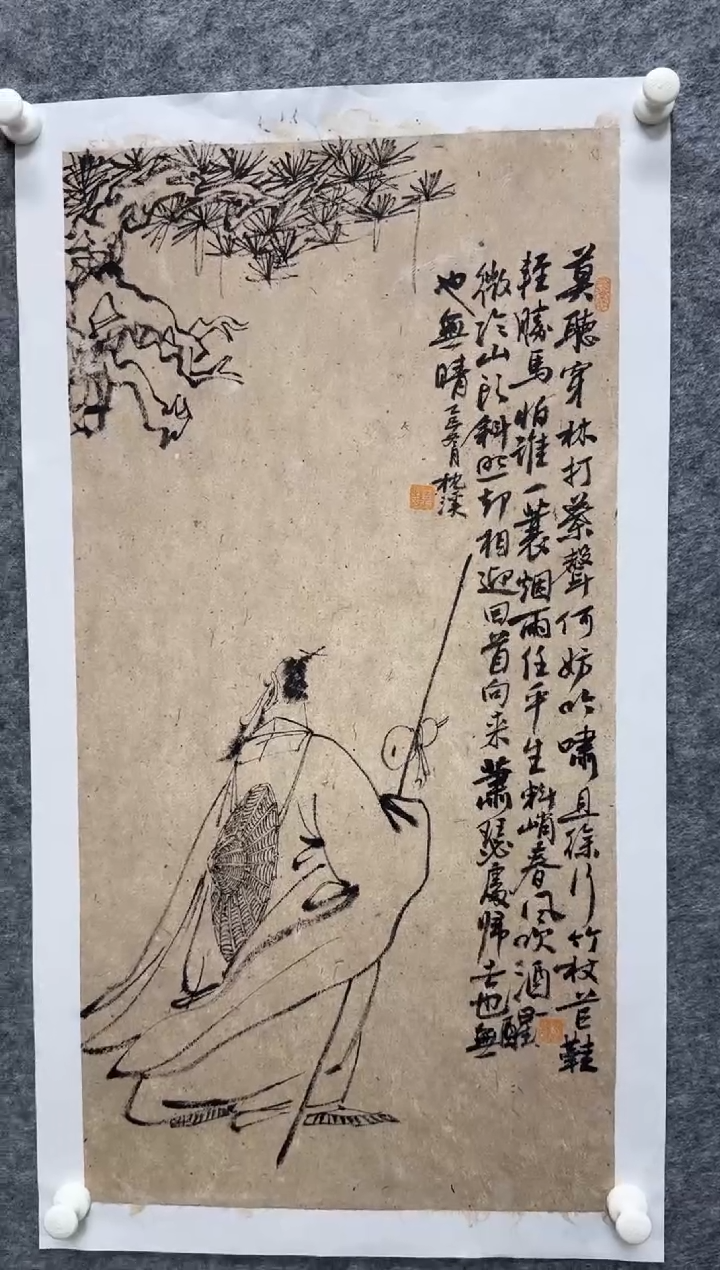 莫聽穿林打葉聲何妨吟嘯且徐行竹杖芒鞋
輕勝馬怕誰一蓑烟雨任平生料峭春風吹酒醒
微冷山頭斜照却相迎回首向来蕭瑟處歸去也無
也無晴
乙巳月
枕溪